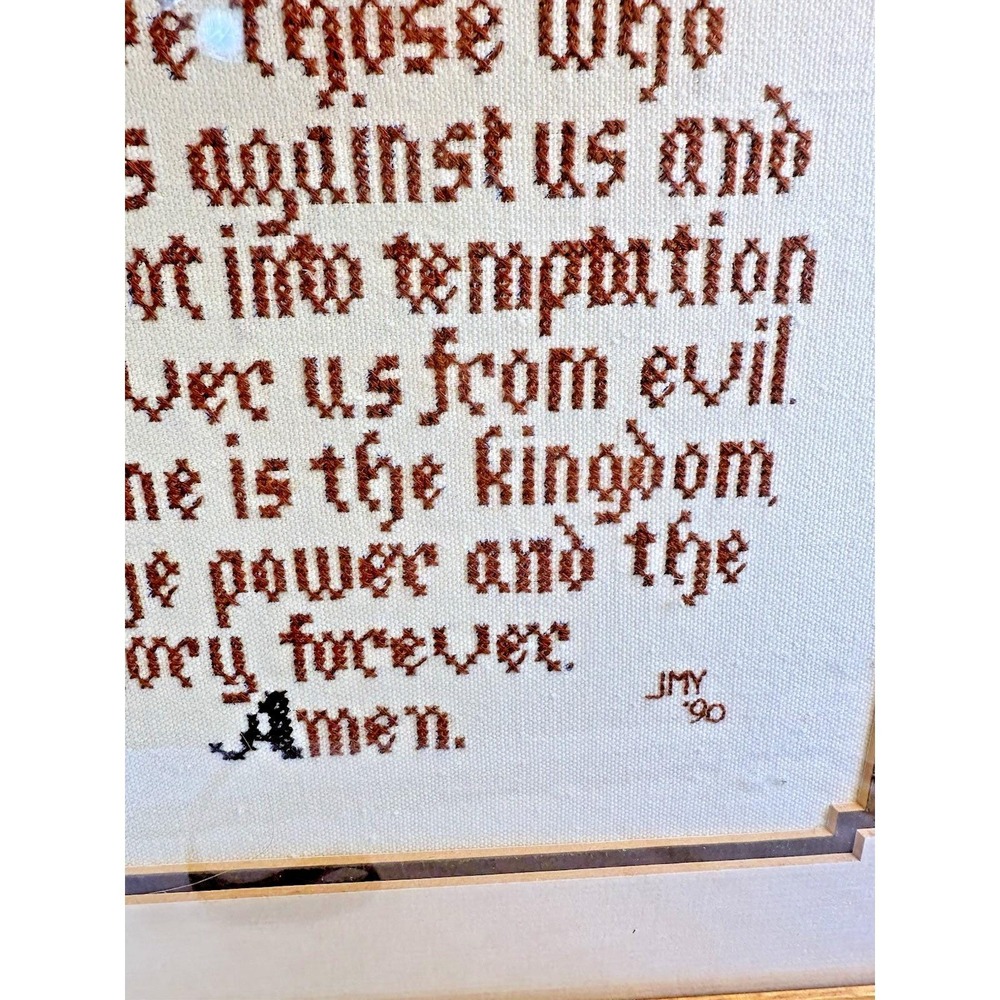 those who
against us and
into temptation
ver us from evil.
ne is the kingdom,
power and the
ory forever.
Amen.
JMY
'90